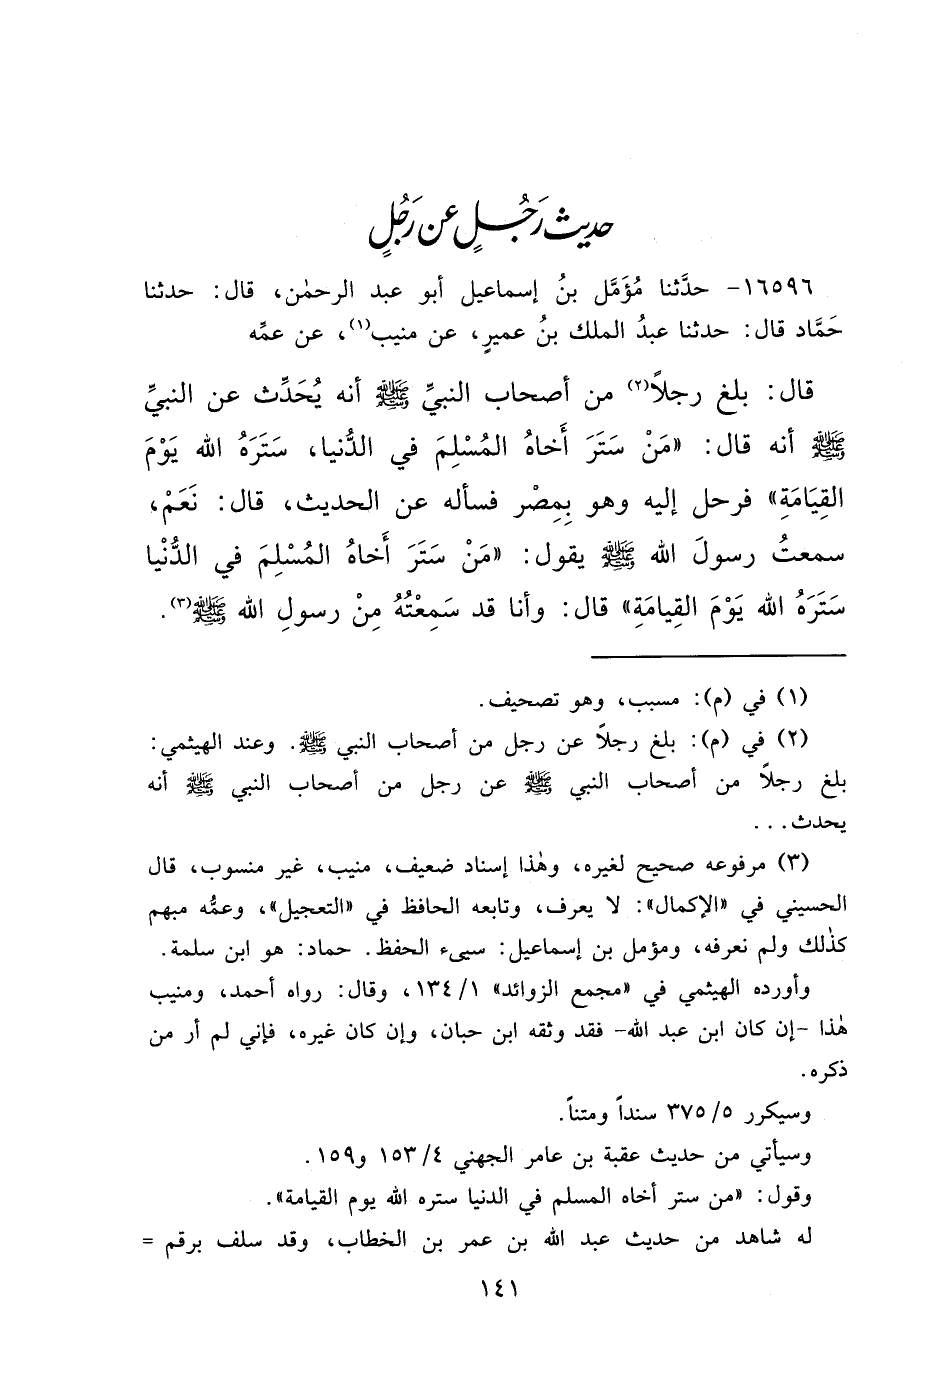 حديث رَجُلٍ عن رَجُلٍ
١٦٥٩٦- حدَّثنا مُؤَمَّل بنُ إسماعيل أبو عبد الرحمٰن، قال: حدثنا
حَمَّاد قال: حدثنا عبدُ الملك بنُ عميرٍ، عن منيب(١)، عن عمِّه
قال: بلغ رجلاً(٢) من أصحاب النبيِّ ﷺ أنه يُحَدِّث عن النبيِّ
ﷺ أنه قال: «مَنْ سَتَرَ أَخاهُ المُسْلِمَ في الدُّنيا، سَتَرَهُ الله يَوْمَ
القِيَامَةِ» فرحل إليه وهو بِمِصْر فسأله عن الحديث، قال: نَعَمْ،
سمعتُ رسولَ الله ﷺ يقول: «مَنْ سَتَرَ أَخاهُ المُسْلِمَ في الدُّنْيا
سَتَرَهُ الله يَوْمَ القِيامَةِ» قال: وأنا قد سَمِعْتُهُ مِنْ رسولِ الله ﷺ(٣).
(١) في (م): مسبب، وهو تصحيف.
(٢) في (م): بلغ رجلاً عن رجل من أصحاب النبي ﷺ. وعند الهيثمي:
بلغ رجلاً من أصحاب النبي ﷺ عن رجل من أصحاب النبي ﷺ أنه
يحدث...
(٣) مرفوعه صحيح لغيره، وهٰذا إسناد ضعيف، منيب، غير منسوب، قال
الحسيني في «الإكمال»: لا يعرف، وتابعه الحافظ في «التعجيل»، وعمُّه مبهم
كذٰلك ولم نعرفه، ومؤمل بن إسماعيل: سيىء الحفظ. حماد: هو ابن سلمة.
وأورده الهيثمي في «مجمع الزوائد» ١/ ١٣٤، وقال: رواه أحمد، ومنيب
هٰذا -إن كان ابن عبد الله- فقد وثقه ابن حبان، وإن كان غيره، فإني لم أر من
ذكره.
وسيكرر ٥/ ٣٧٥ سنداً ومتناً.
وسيأتي من حديث عقبة بن عامر الجهني ٤/ ١٥٣ و١٥٩.
وقول: «من ستر أخاه المسلم في الدنيا ستره الله يوم القيامة».
له شاهد من حديث عبد الله بن عمر بن الخطاب، وقد سلف برقم =
١٤١